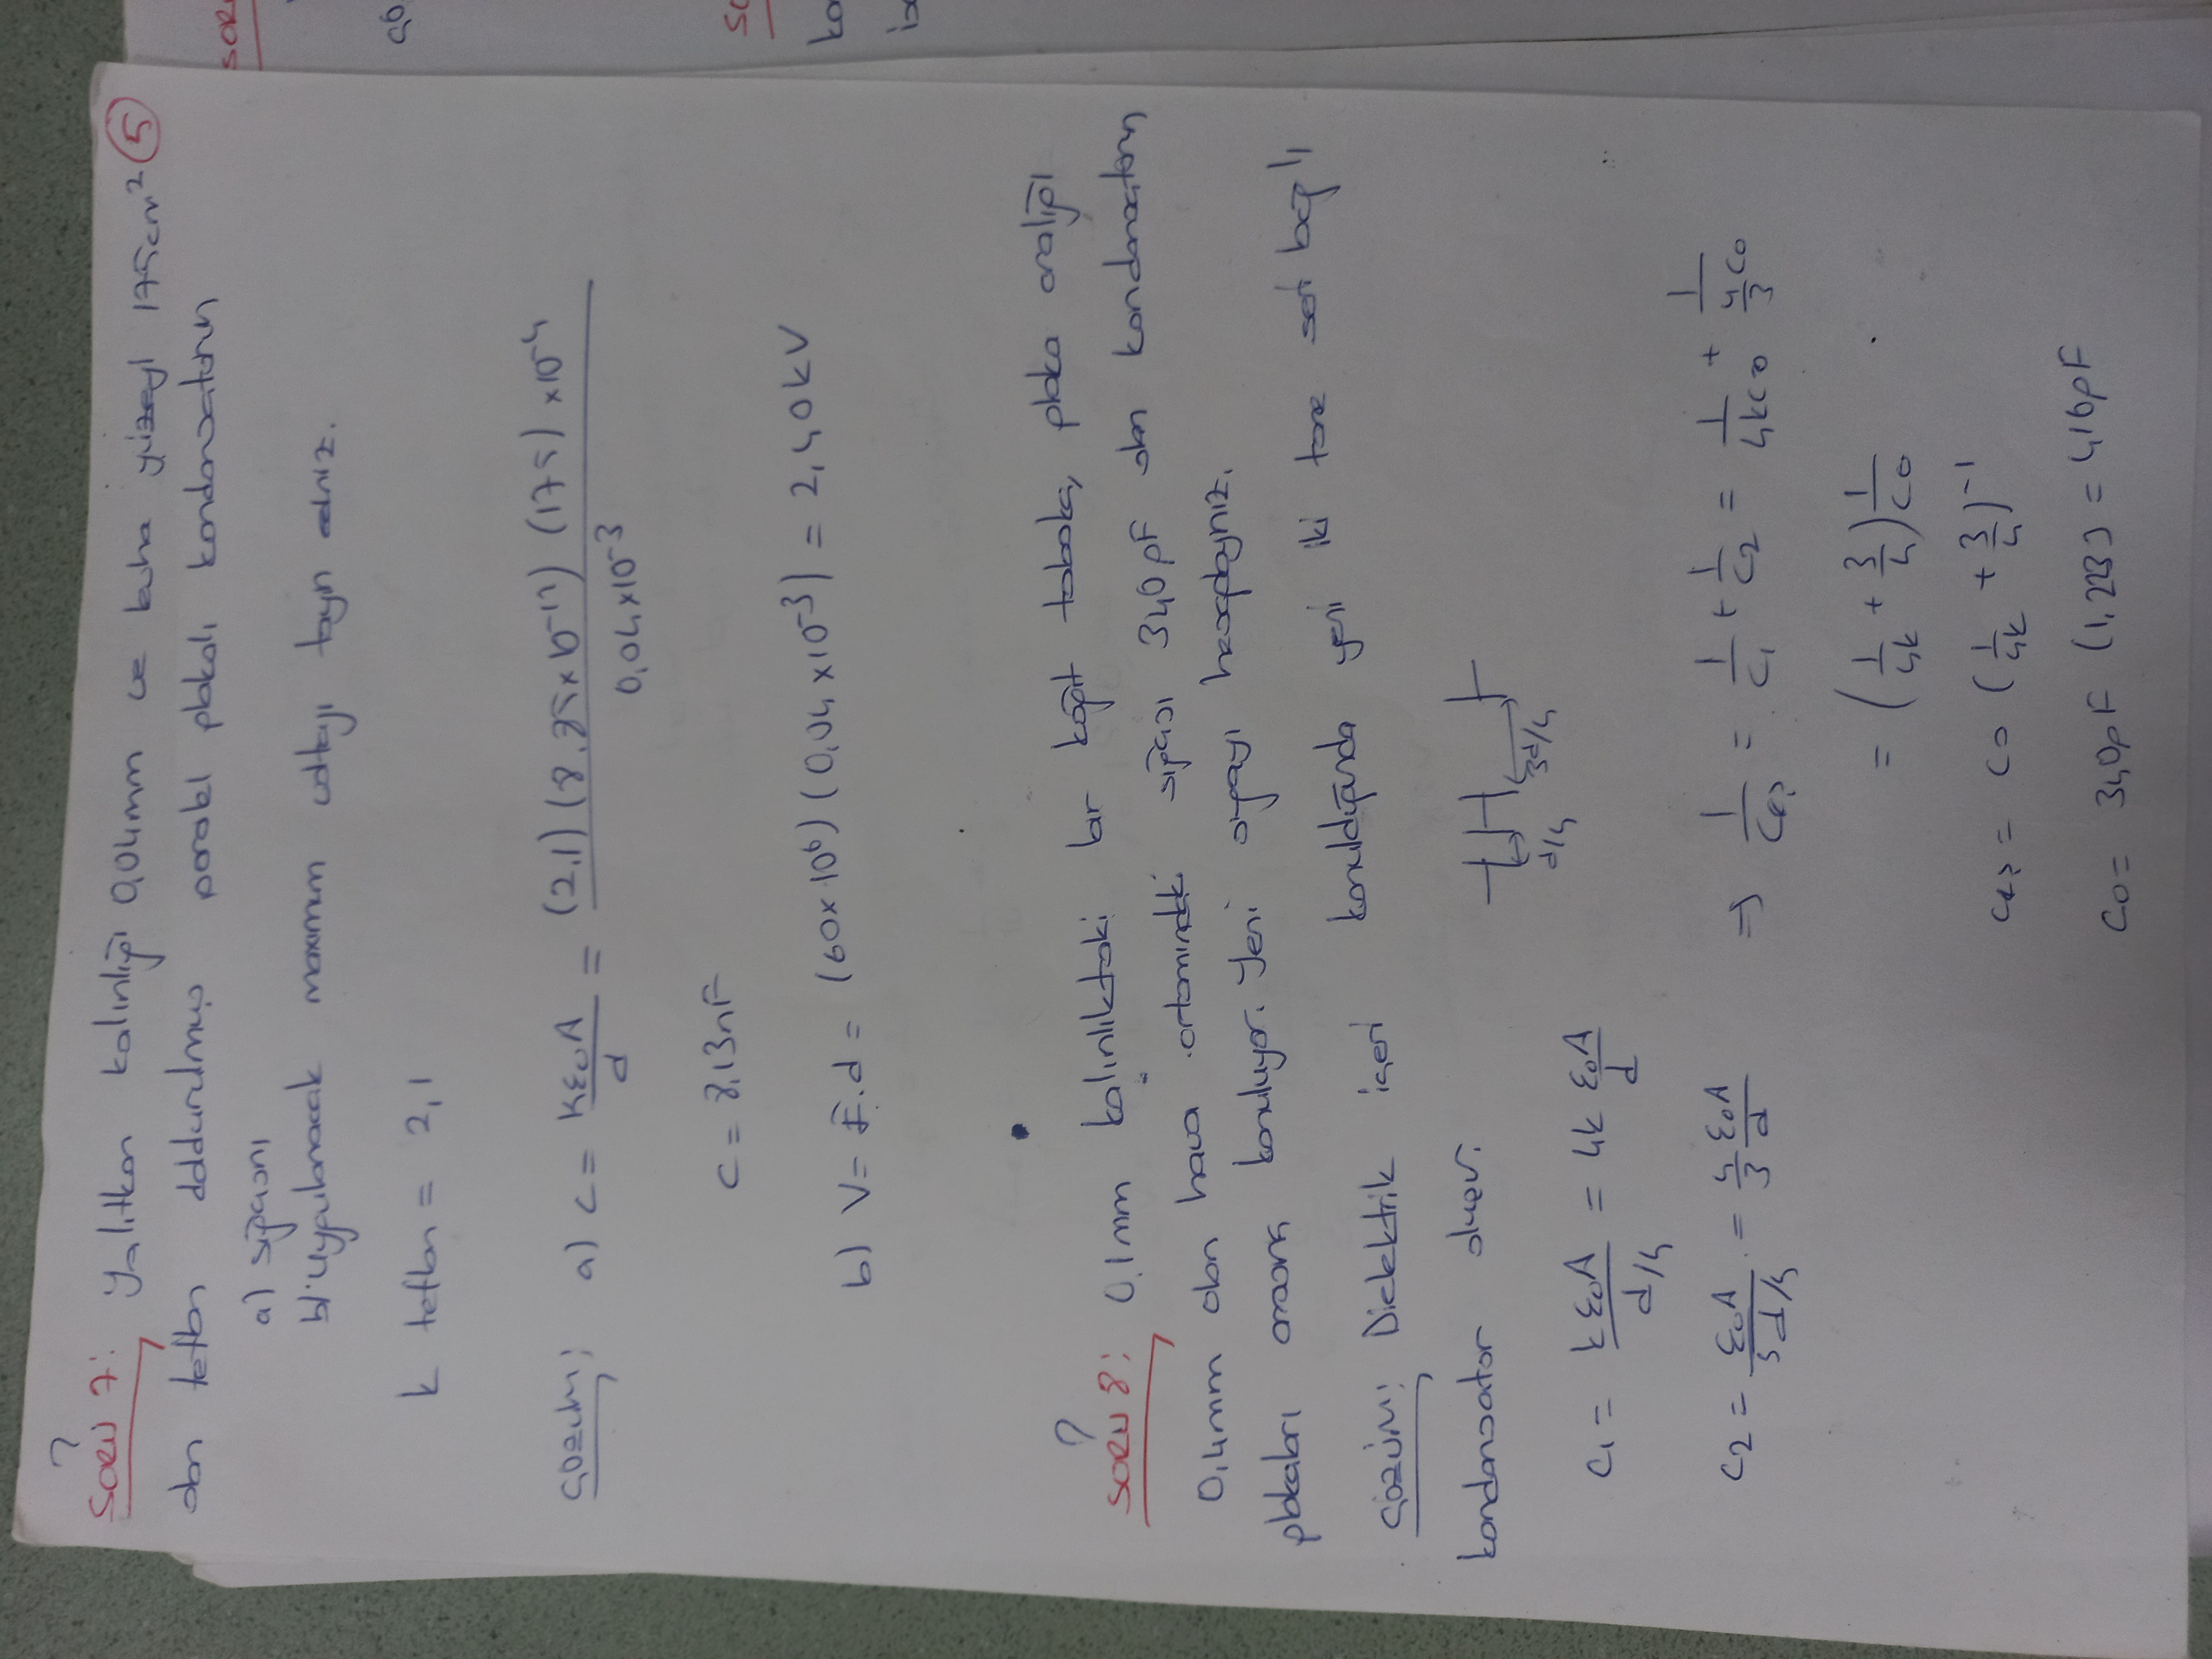 ?
SORU 7: Yalıtkan kalınlığı 0,04mm ve levha yüzeyi 175cm² 5
olan teflon doldurulmuş paralel plakalı kondansatörün
a) sığasını
b) Uygulanacak maximum voltajı tayin ediniz.
k teflon = 2,1
ÇÖZÜM: a) C = kε₀A/d = (2,1)(8,85x10⁻¹²)(175)x10⁻⁴ / 0,04x10⁻³
C = 8,13nF
b) V = E.d = (60x10⁶)(0,04x10⁻³) = 2,40kV
?
SORU 8: 0,1mm kalınlıktaki bir kağıt tabaka, plaka aralığı
0,4mm olan hava ortamındaki sığası 340pF olan kondansatörün
plakaları arasına konuluyor. Yeni sığayı hesaplayınız.
ÇÖZÜM: Dielektrik içeri konulduğunda yeni iki tane seri bağlı
kondansatör oluşur.
d/4 3d/4
C₁ = kε₀A / d/4 = 4k ε₀A/d
C2 = ε₀A / 3d/4 = 4/3 ε₀A/d ⇒ 1/Ceş = 1/C₁ + 1/C₂ = 1/4kC₀ + 1 / 4/3 C₀
= (1/4k + 3/4) 1/C₀
Ceş = C₀ (1/4k + 3/4)⁻¹
C₀ = 340pF (1,223) = 416pF